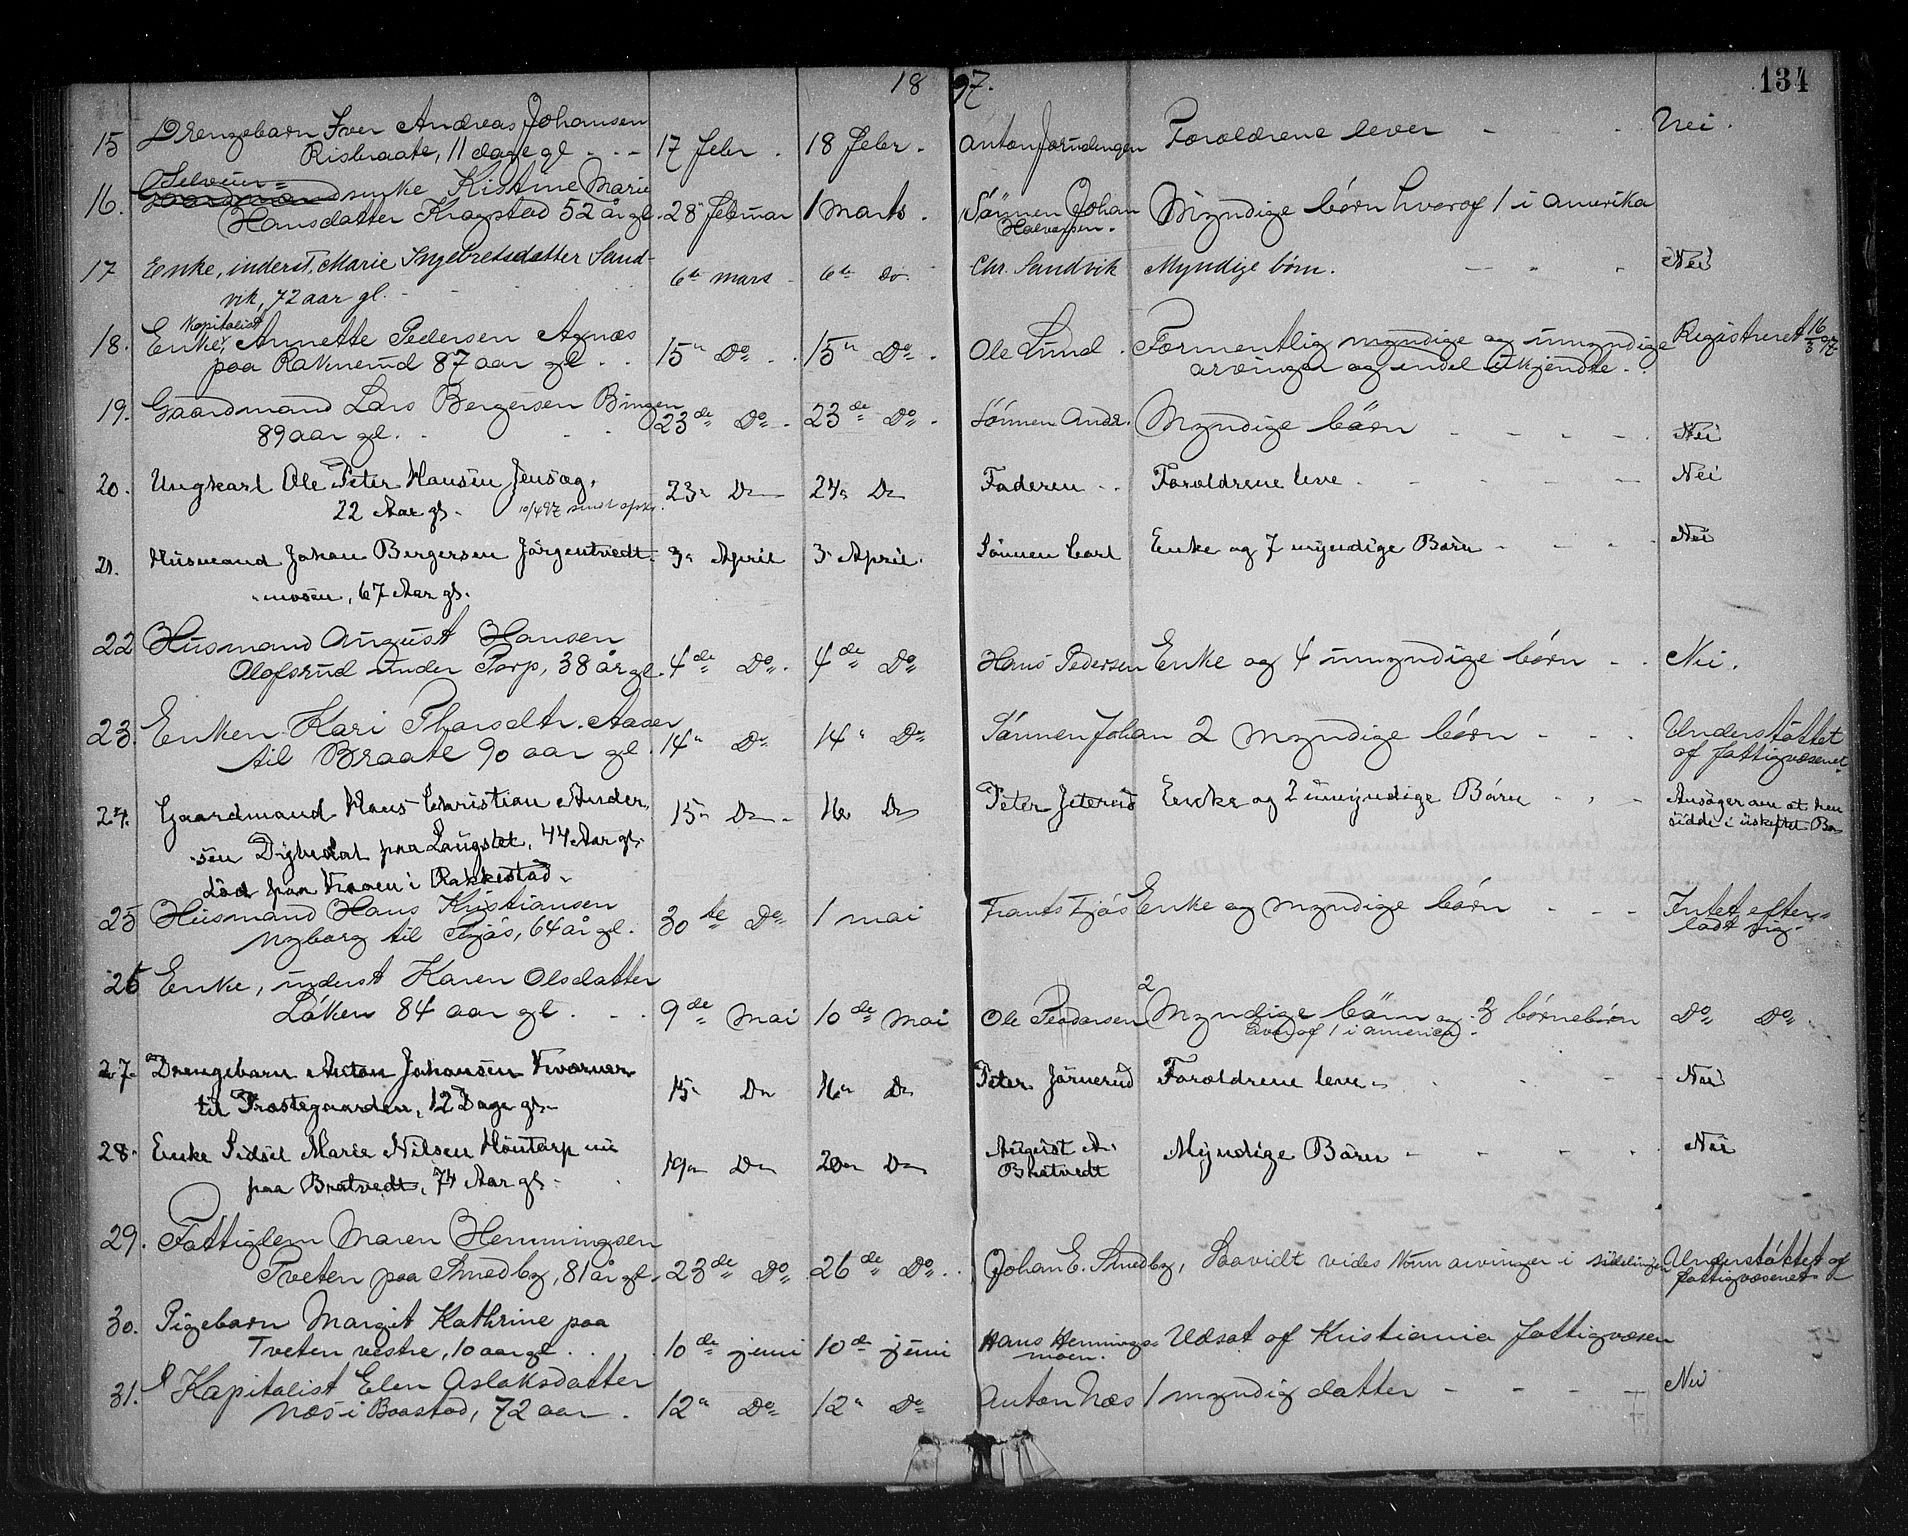 18 97. 134
15 Drengebarn Iver Andreas Johansen
Risbraate, 11 dage gl - - - 17 febr. 18 febr. Anton Jørudengen Foroldrene lever - - Nei.
Selveier=
16. Gaardmandsenke Kistine Marie
Hansdatter Kragstad 52 år gl. 28 februar 1 marts. Sönnen Johan Myndige børn hvorof 1 i amerika
Halvorsen.
17 Enke, inderst, Marie Ingebretsdatter Sand-
vik, 72 aar gl. - 6te mars - 6te do. Chr. Sandvik Myndige børn. - - . Nei
Kapitalist
18. Enke, Annette Pedersen Agnæs
paa Raknerud 87 aar gl . . 15n Do . . 15n Do . Ole Lund . Formentlig myndige og umyndige Registreret 16/3 97
arvinger og endel Ukjendte. .
19. Gaardmand Lars Bergersen Bingen
89 aar gl. . 23de Do - 23de Do . Sönnen Andr. Myndige børn - - - - Nei
20. Ungkarl Ole Peter Hansen Jensøg,
22 Aar gl. 10/4 97 sendt 23n Do 24n Do Faderen . . Foroldrene leve . - - - Nei
21. Husmand Johan Bergersen Jørgentvedt-
mosen, 67 Aar gl. 3n April 3n April. Sönnen Carl Enke og 7 myndige Børn - - . . Nei
22 Husmand August Hansen
Olofsrud under Torp, 38 år gl. 4de Do. 4de Do Hans Pedersen Enke og 4 umyndige børn - . Nei.
23. Enken Kari Tharsdtr. Aaser
til Braate 90 aar gl. 14n Do 14n Do Sönnen Johan 2 myndige børn - - . Understöttet
af fattigvæsenet.
24. Gaardmand Hans Christian Ander
sen paa Laugslet, 44 Aar gl.
død paa i Rakkestad. 15n Do 16 Do Peter Enke og 2 umyndige Børn - . - Ansöger om at hen
sidde i uskiftet Bo
25 Husmand Hans Kristiansen
Nyborg til Fjøs, 64 år gl. 30te Do 1 mai Frants Fjøs Enke og myndige børn - - - Intet efter=
ladt sig.
26 Enke, inderst Karen Olsdatter
Løken 84 aar gl. . - . 9de mai 10de mai Ole Pedersen 2 Myndige børn og 3 børnebørn Do Do
hvorof 1 i america.
27. Drengebarn Anton Johansen Kværner
til Prostegaarden, 12 Dage gl. 15n Do 16n Do Peter Järnerud Foroldrene leve - . - - Nei
28. Enke Sidsel Marie Nilsen Höntorp nu
paa Bratvedt, 74 Aar gl. - 19n Do 20n Do August A. Myndige Børn - - - . Nei
Bratvedt
29. Fattiglem Maren Hemmingsen
Tveten paa Smedby, 81 år gl. 23de Do 26de Do . . Johan E. Smedby, Saavidt vides kun arvinger i sidelinjen Understöttet af
fattigvæsenet.
30. Pigebarn Margit Kathrine paa
Tveten vestre, 10 aar gl. . . 10de juni 10de juni Hans Hennings= Udsat af Kristiania fattigvæsen
moen.
31. Kapitalist Elen Aslaksdatter
Næs i Baastad, 72 aar . 12n Do 12n Do Anton Næs 1 myndig datter - - - - Nei